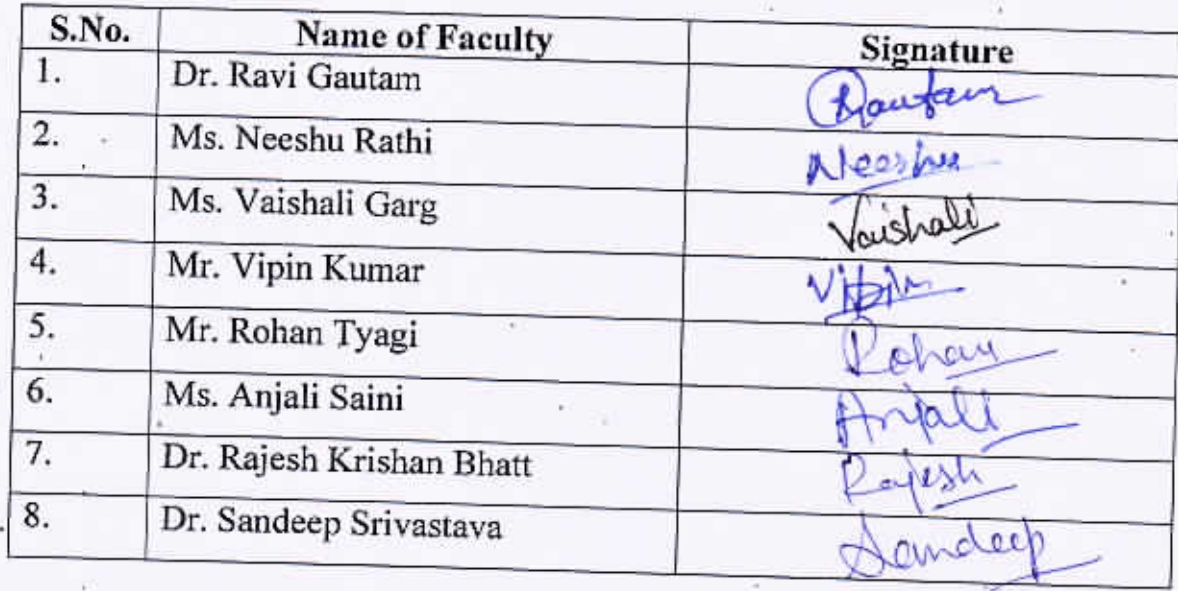 S.No. Name of Faculty Signature
1. Dr. Ravi Gautam Rgautam
2. Ms. Neeshu Rathi Neeshu
3. Ms. Vaishali Garg Vaishali
4. Mr. Vipin Kumar Vipin
5. Mr. Rohan Tyagi Rohan
6. Ms. Anjali Saini Anjali
7. Dr. Rajesh Krishan Bhatt Rajesh
8. Dr. Sandeep Srivastava Sandeep